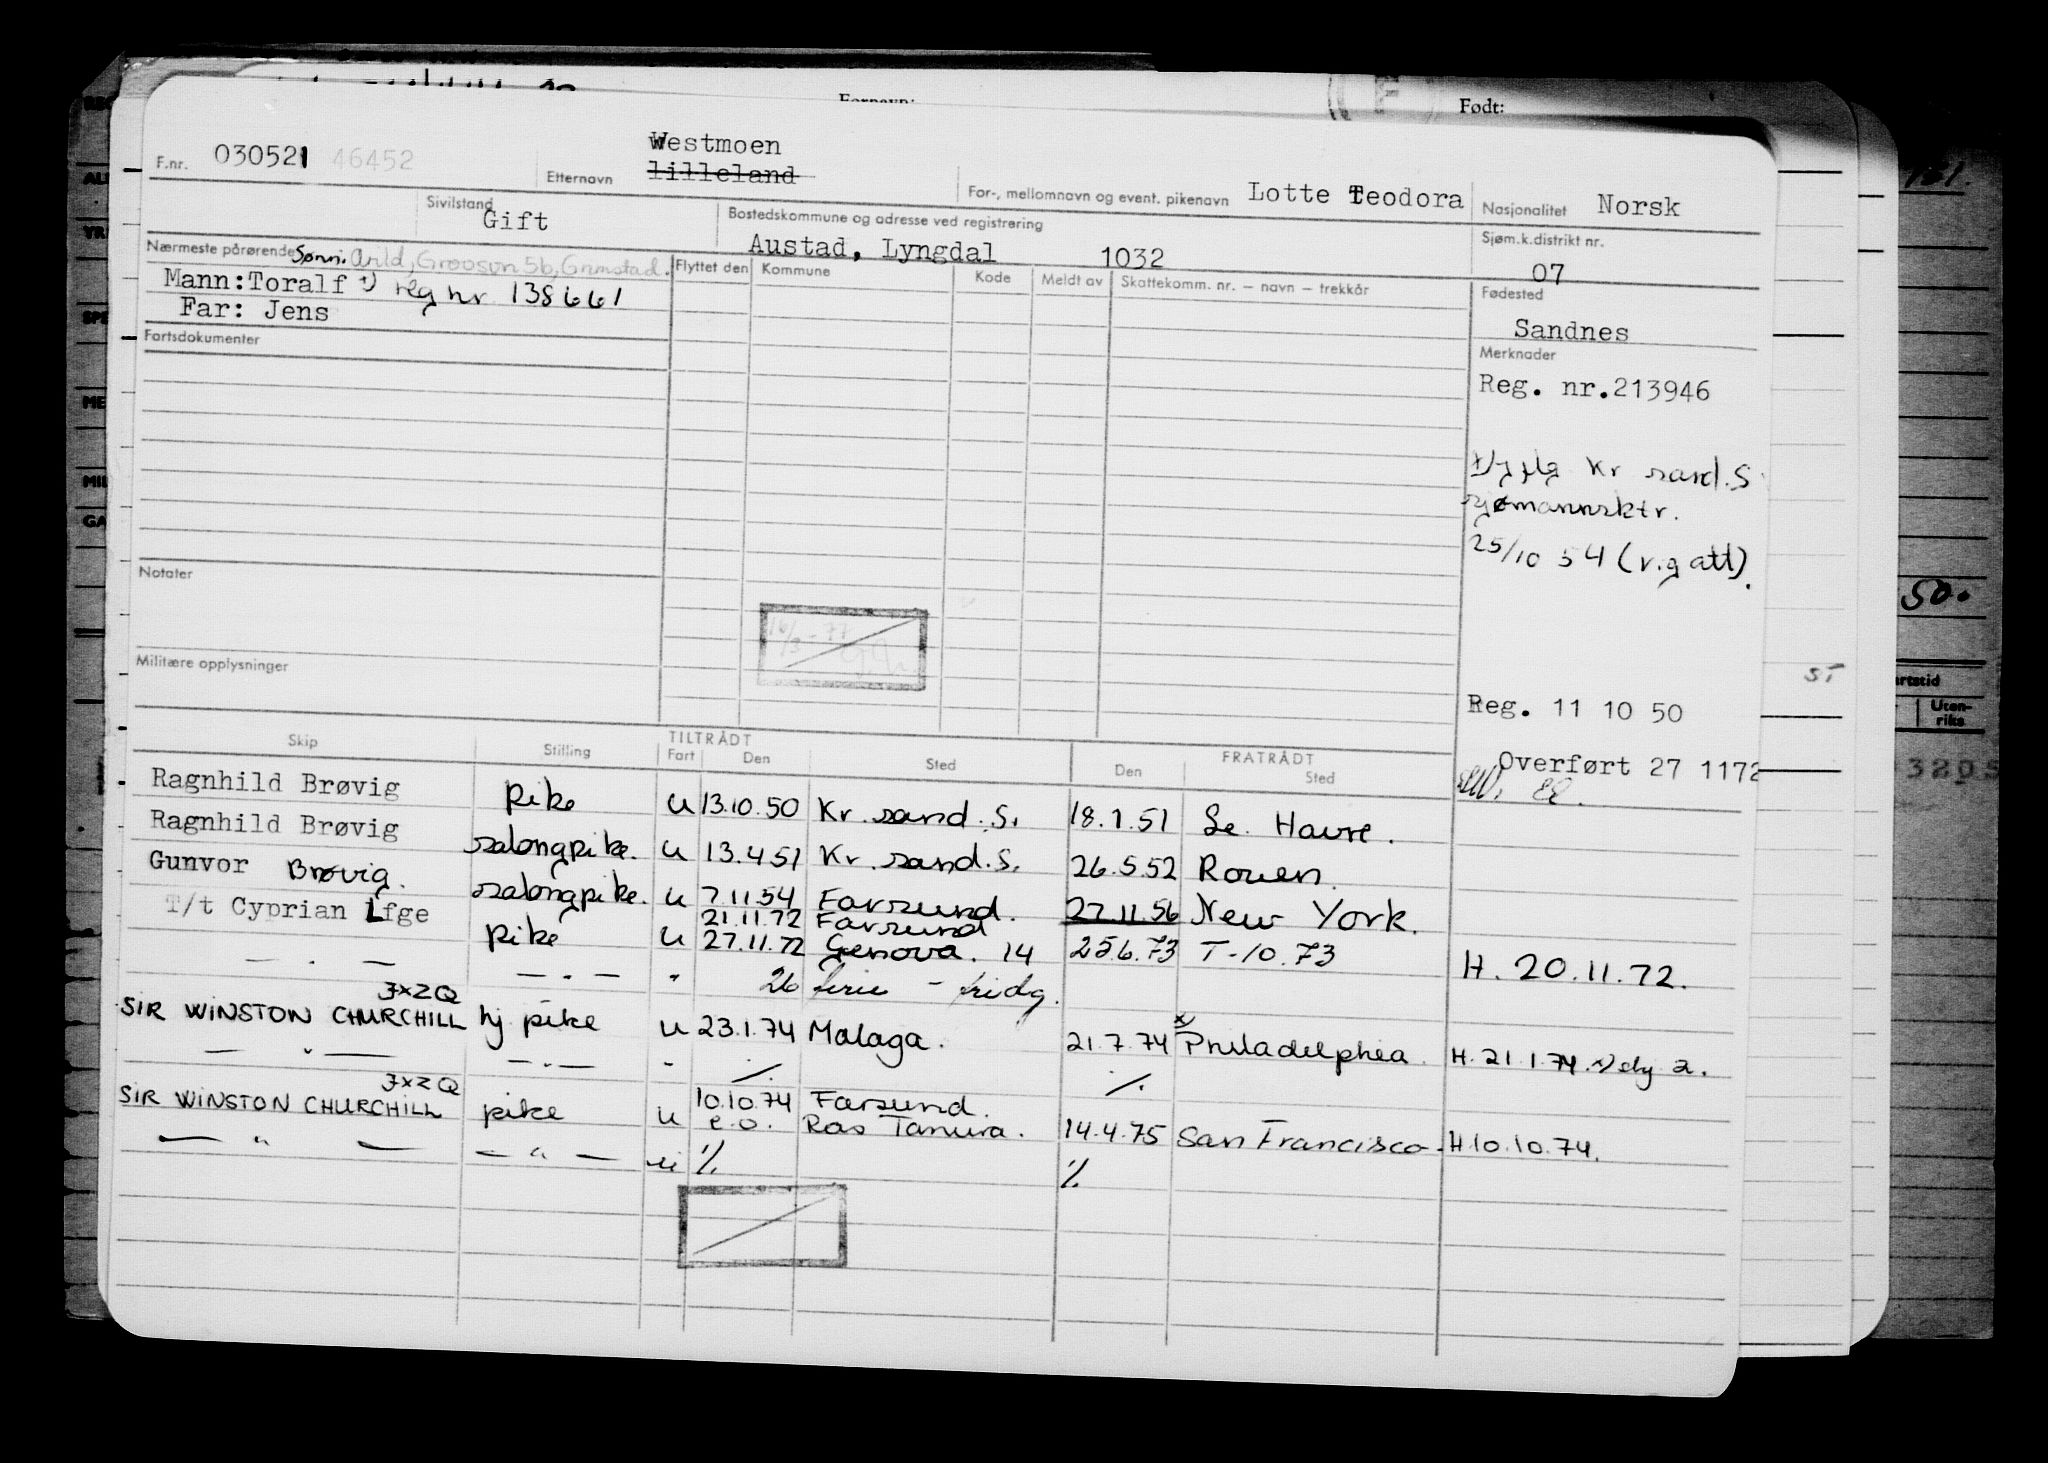 Fornavn:
Født:
F.nr. 030521 46452
Westmoen
Etternavn lilleland
For-, mellomnavn og event. pikenavn Lotte Teodora
Nasjonalitet Norsk
Sivilstand Gift
Bostedskommune og adresse ved registrering
Austad, Lyngdal 1032
Sjøm.k.distrikt nr.
07
Nærmeste pårørende Sønn: Arild, Groosvn 5b, Grimstad.
Mann: Toralf reg nr 138661
Far: Jens
Flyttet den Kommune Kode Meldt av Skattekomm. nr. — navn — trekkår
Fødested
Sandnes
Fartsdokumenter
Merknader
Reg. nr. 213946
Kr sand. S
sjømannsktr.
25/10 54 (v.g att).
Notater
16/3-77
Militære opplysninger
Reg. 11 10 50
Overført 27 1172
Skip Stilling TILTRÅDT FRATRÅDT
Fart Den Sted Den Sted
Ragnhild Brøvig pike u 13.10.50 Kr. sand. S. 18.1.51 Le Havre.
Ragnhild Brøvig salongpike. u 13.4 51 Kr. sand. S. 26.5.52 Rouen.
Gunvor Brøvig. salongpike. u 7.11.54 Farsund. 27.11.56 New York.
T/t Cyprian Lfge pike u 21.11.72 Farsund
27.11.72 Genova. 14 25.6.73 T-10.73 H. 20.11.72.
— . — — . — " 26 ferie - fridg.
JXZQ
SIR WINSTON CHURCHILL hj pike u 23.1.74 Malaga. 21.7.74 x) Philadelphia. H. 21.1.74. x) sby 2.
— " — — . — - ./. ./.
JXZQ
SIR WINSTON CHURCHILL pike u 10.10.74 Farsund.
e.o. Ras Tanura. 14.4.75 San Francisco. H 10.10.74.
— " — — " — ./. ./.
50.
artstid
Uten-
riks